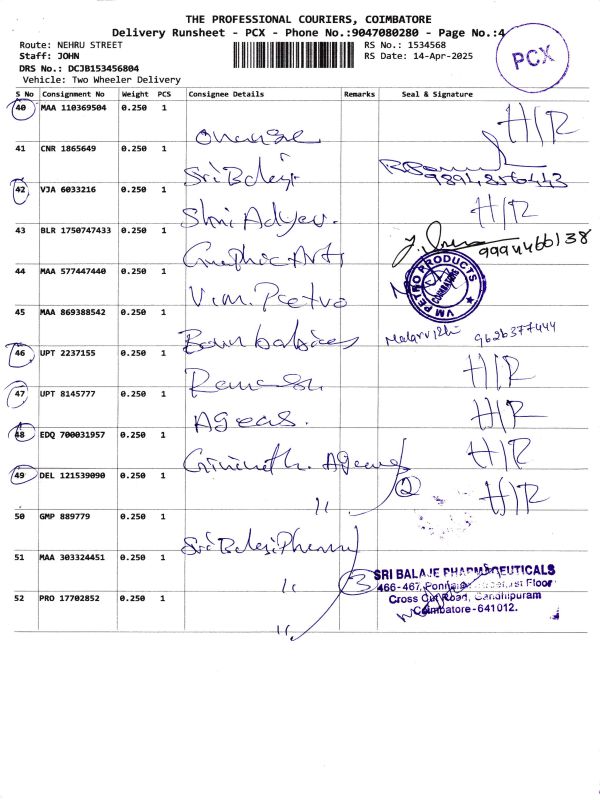 THE PROFESSIONAL COURIERS, COIMBATORE
Delivery Runsheet - PCX - Phone No.:9047080280 - Page No.:4
Route: NEHRU STREET
RS No.: 1534568
Staff: JOHN
RS Date: 14-Apr-2025
DRS No.: DCJB153456804
Vehicle: Two Wheeler Delivery
PCX
S No Consignment No Weight PCS Consignee Details Remarks Seal & Signature
40 MAA 110369504 0.250 1 H/R
41 CNR 1865649 0.250 1 Sri Balaji 9894856443
42 VJA 6033216 0.250 1 H/R
43 BLR 1750747433 0.250 1 Graphic Arts 9994466138
44 MAA 577447440 0.250 1 V.M. Petro
VM PETRO PRODUCTS
COIMBATORE
45 MAA 869388542 0.250 1 9626377444
46 UPT 2237155 0.250 1 Ramesh H/R
47 UPT 8145777 0.250 1 Ageas. H/R
48 EDQ 700031957 0.250 1 H/R
49 DEL 121539090 0.250 1 " 2 H/R
50 GMP 889779 0.250 1 Sri Balaji Pharma
51 MAA 303324451 0.250 1 " 3
SRI BALAJE PHARMACEUTICALS
466-467, Floor
Cross Cut Road, Gandhipuram
Coimbatore - 641012.
52 PRO 17702852 0.250 1 "